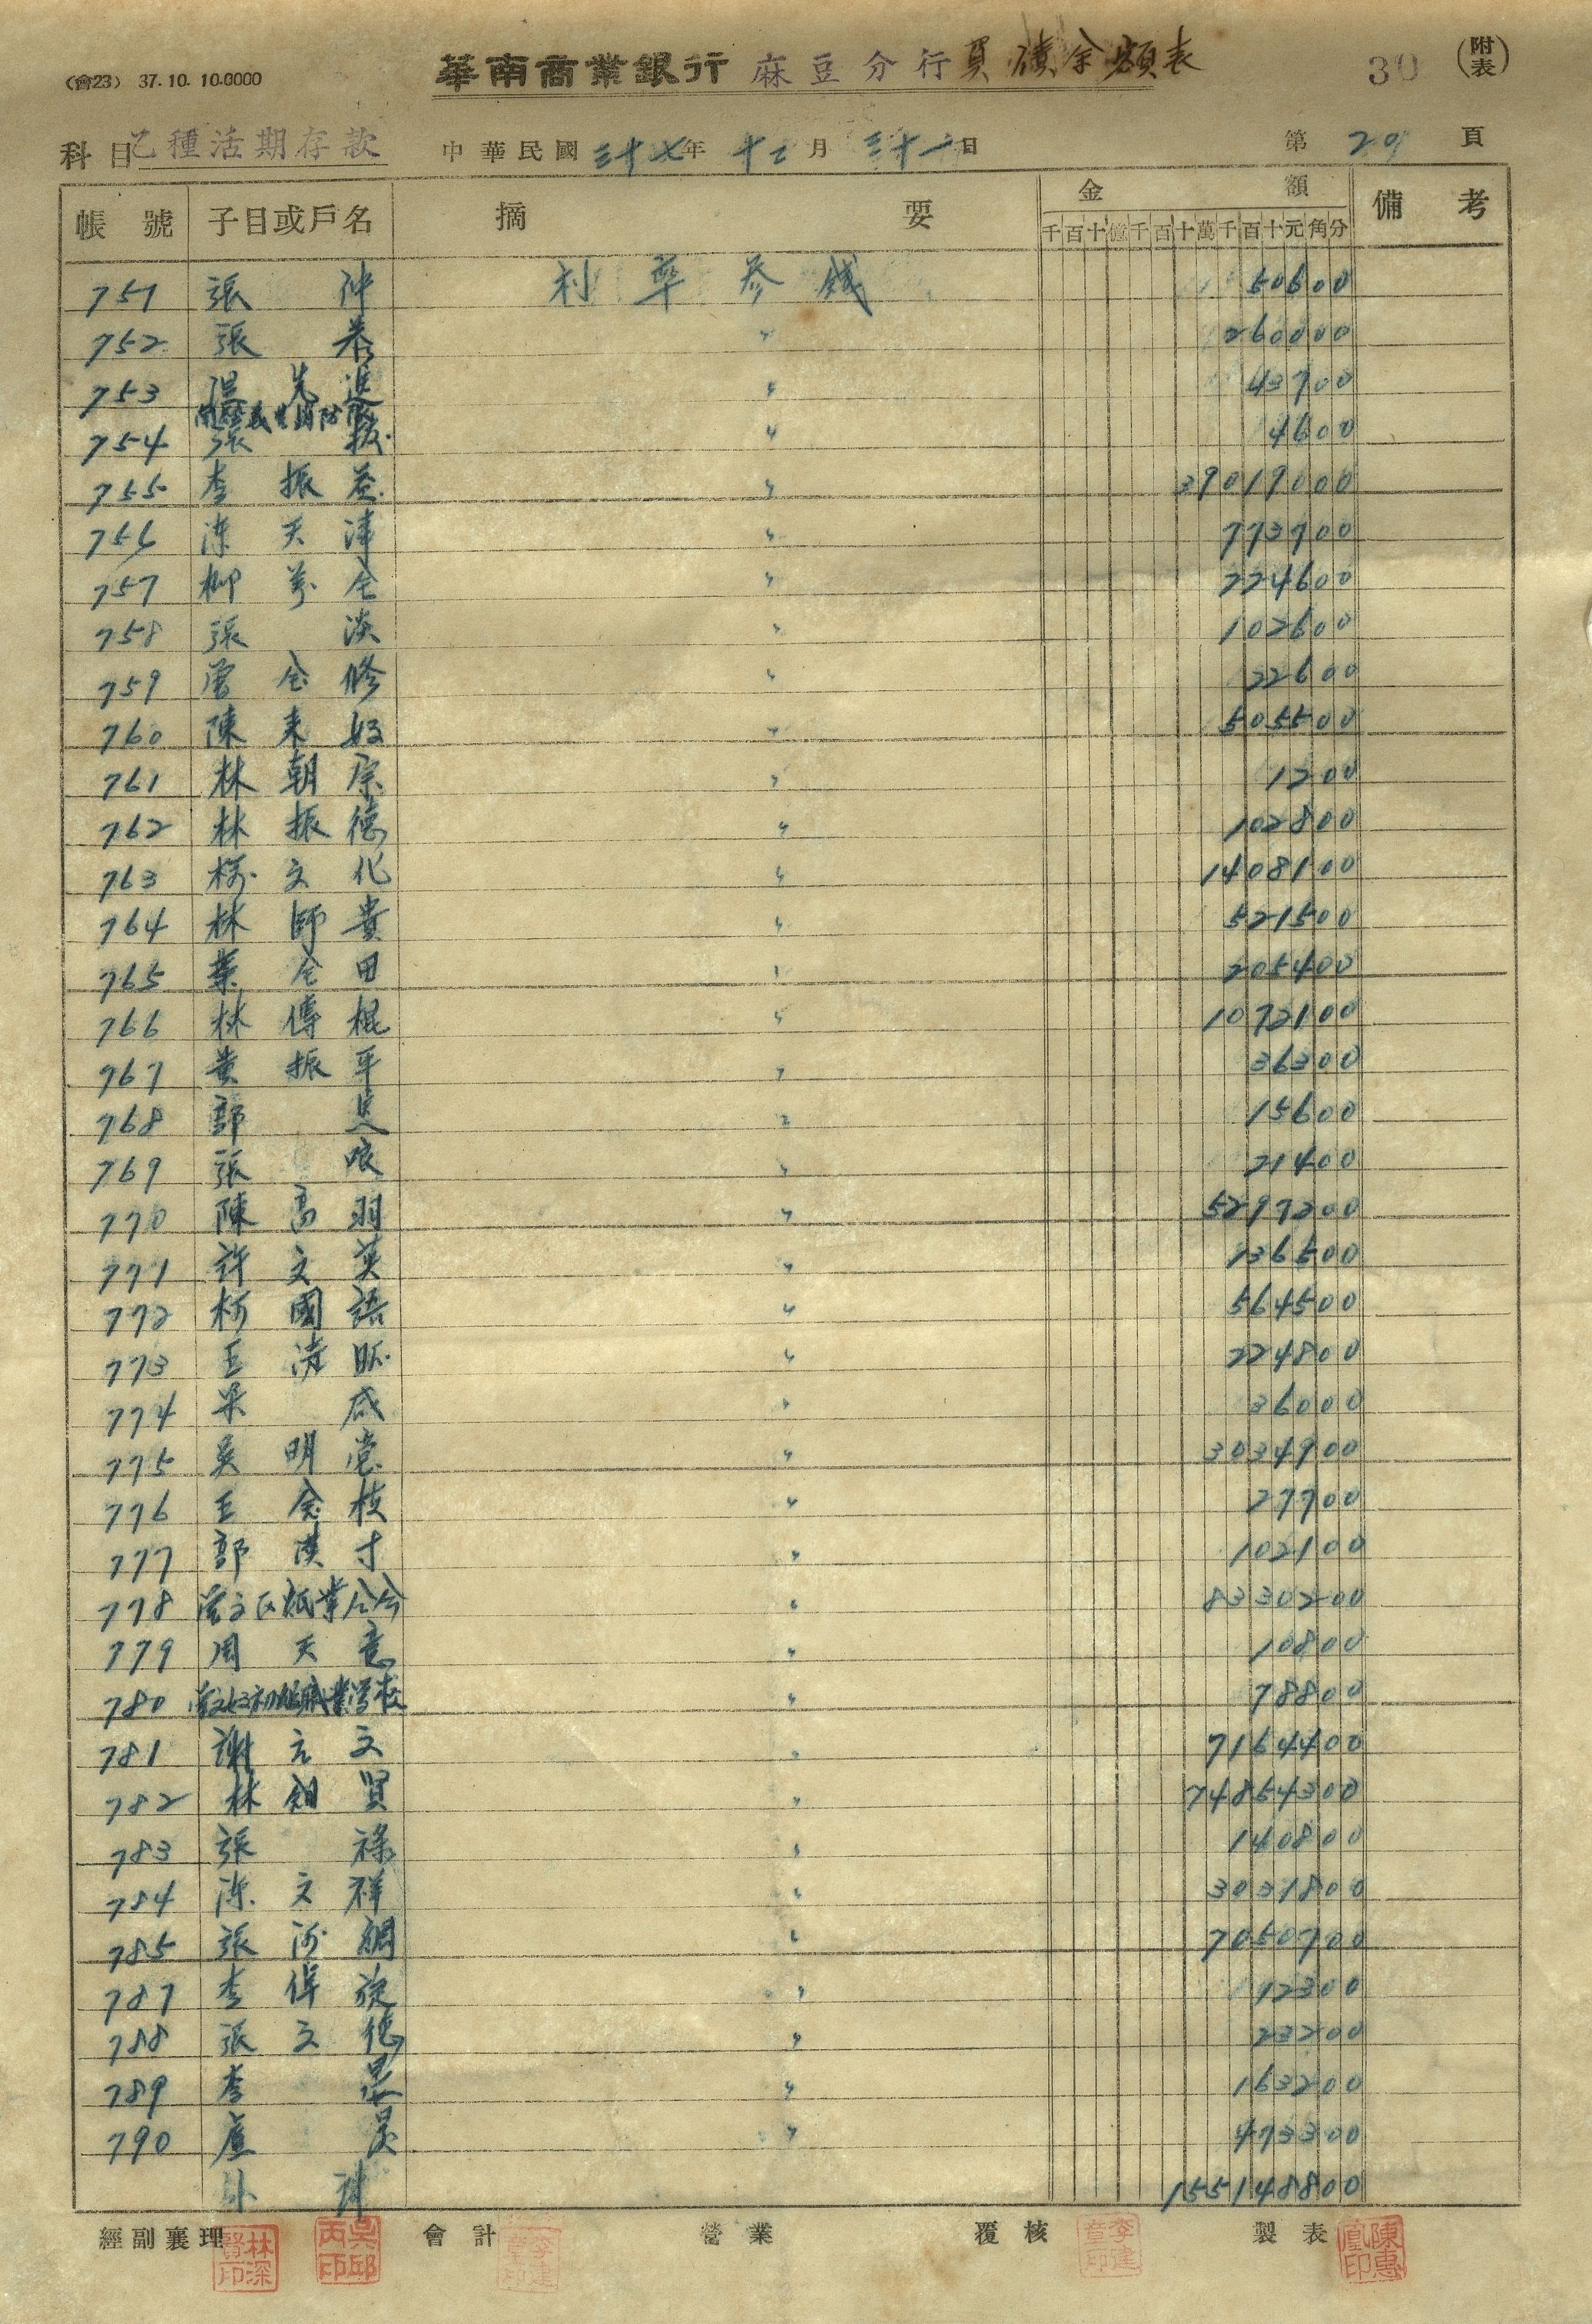 (會23) 37.10.10.0000
華南商業銀行 麻豆分行 負債余額表
30
(附表)
科目 乙種活期存款
中華民國三十七年十二月三十一日
第29頁
帳號 子目或戶名 摘要 金額 備考
千百十億千百十萬千百十元角分
751 張 利率參錢 50600
752 張 〃 260000
753 先進 〃 43700
754 張 〃 4600
755 李振益 〃 39019000
756 陳天津 〃 773700
757 柳萬全 〃 224600
758 張淡 〃 102600
759 曾金修 〃 22600
760 陳來好 〃 505500
761 林朝宗 〃 1200
762 林振德 〃 102800
763 柯文化 〃 1408100
764 林師貴 〃 521500
765 葉全田 〃 205400
766 林傳棍 〃 1072100
767 黃振平 〃 36300
768 郭 〃 15600
769 張 〃 21400
770 陳高羽 〃 5297200
771 許文英 〃 136500
772 柯國語 〃 564500
773 王清 〃 224800
774 〃 36000
775 吳明堂 〃 3034900
776 王金枝 〃 27700
777 郭漢寸 〃 102100
778 曾文區 業公會 〃 8330200
779 周天意 〃 10800
780 曾文 初級職業學校 〃 78800
781 謝元文 〃 7164400
782 林 賢 〃 74864300
783 張祿 〃 140800
784 陳文祥 〃 3031800
785 張 〃 7050700
787 李 旋 〃 12300
788 張文德 〃 23200
789 李 〃 163200
790 盧 〃 473300
小計 155148800
經副襄理 會計 營業 覆核 製表
林深醫印
吳邱丙印
李建章印
李建章印
陳惠凰印